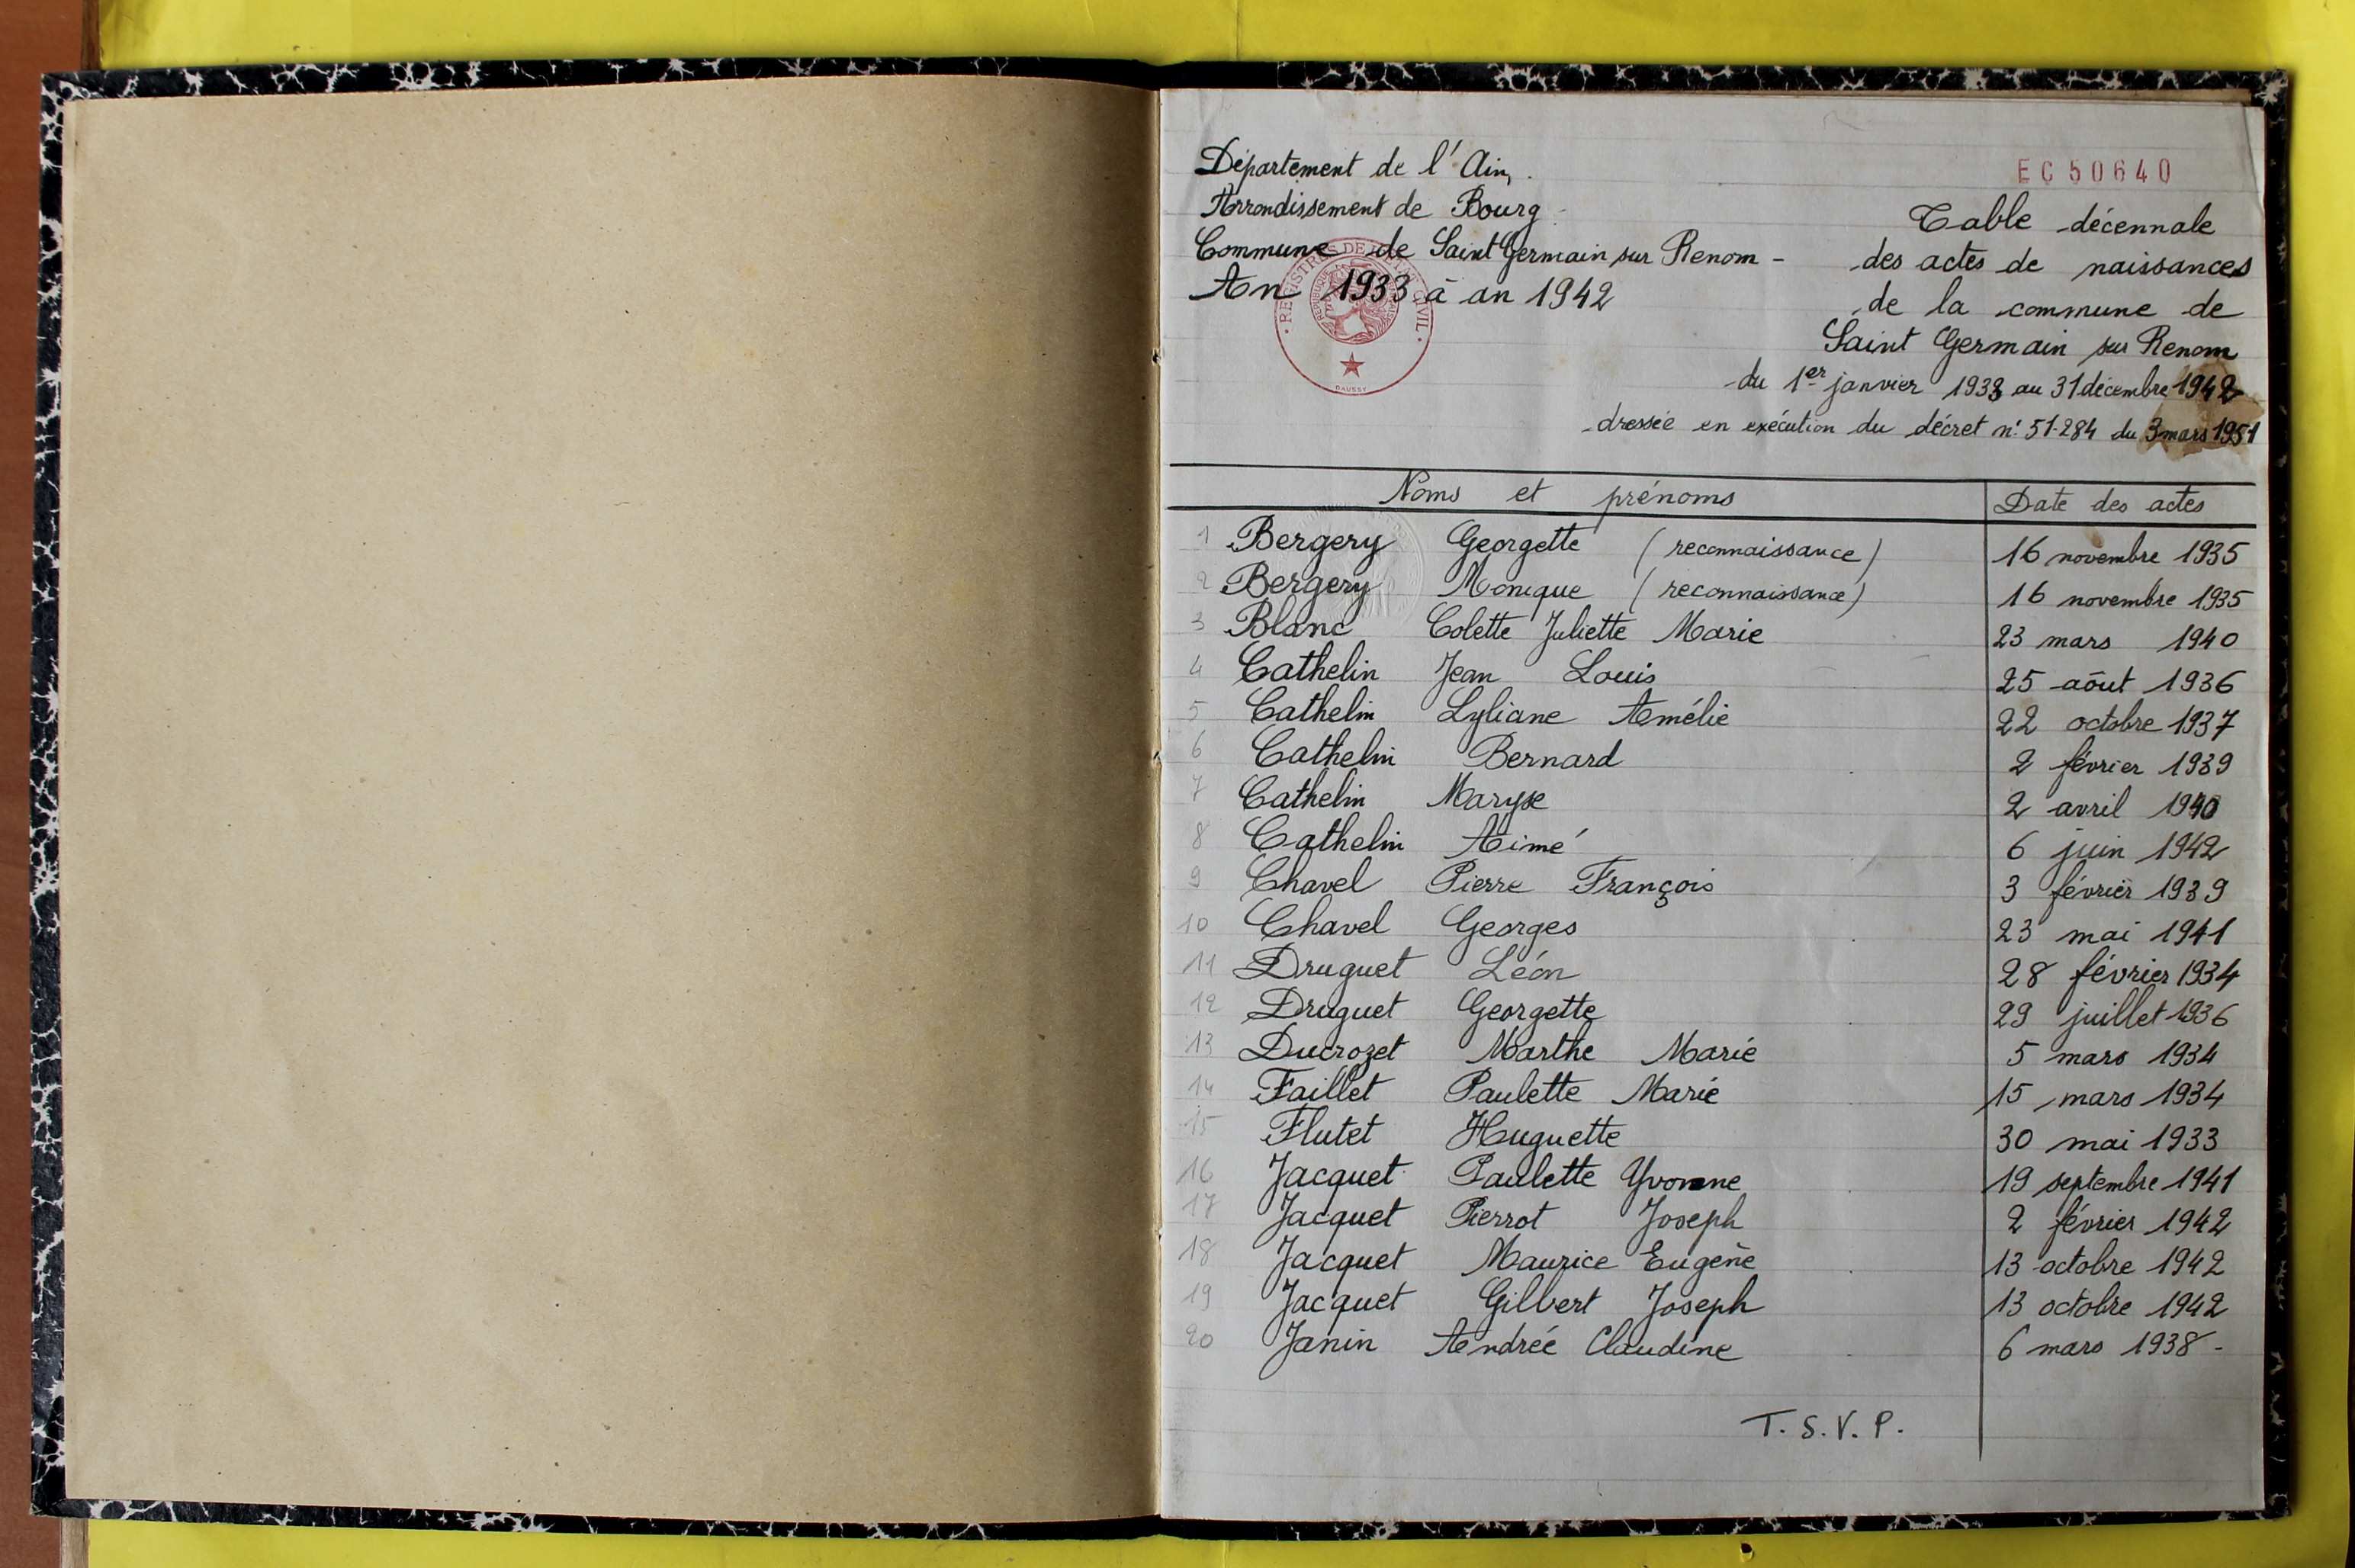 Département de l'Ain.
Arrondissement de Bourg
Commune de Saint Germain sur Renom -
An 1933 à an 1942
REGISTRES DE L'ETAT CIVIL
DAUSSY
EC50640
Table décennale
des actes de naissances
de la commune de
Saint Germain sur Renom
du 1er janvier 1933 au 31 décembre 1942
dressée en exécution du décret n° 51-284 du 3 mars 1951
Noms et prénoms Date des actes
1 Bergery Georgette (reconnaissance) 16 novembre 1935
2 Bergery Monique (reconnaissance) 16 novembre 1935
3 Blanc Colette Juliette Marie 23 mars 1940
4 Cathelin Jean Louis 25 août 1936
5 Cathelin Lyliane Amélie 22 octobre 1937
6 Cathelin Bernard 2 février 1939
7 Cathelin Maryse 2 avril 1940
8 Cathelin Aimé 6 juin 1942
9 Chavel Pierre François 3 février 1939
10 Chavel Georges 23 mai 1941
11 Druguet Léon 28 février 1934
12 Druguet Georgette 29 juillet 1936
13 Ducrozet Marthe Marie 5 mars 1934
14 Faillet Paulette Marie 15 mars 1934
15 Flutet Huguette 30 mai 1933
16 Jacquet Paulette Yvonne 19 septembre 1941
17 Jacquet Pierrot Joseph 2 février 1942
18 Jacquet Maurice Eugène 13 octobre 1942
19 Jacquet Gilbert Joseph 13 octobre 1942
20 Janin Andrée Claudine 6 mars 1938 -
T.S.V.P.